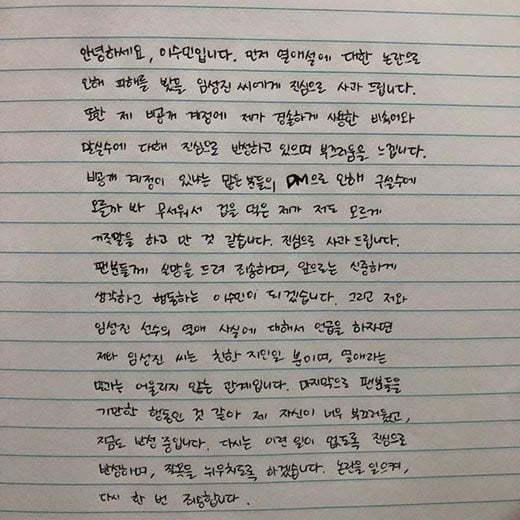 안녕하세요, 이수민입니다. 먼저 열애설에 대한 논란으로
인해 피해를 받았을 임성진 씨에게 진심으로 사과 드립니다.
또한 제 비공개 계정에 제가 경솔하게 사용한 비속어와
말실수에 대해 진심으로 반성하고 있으며 부끄러움을 느낍니다.
비공개 계정이 있냐는 많은 분들의 DM으로 인해 구설수에
오를까 봐 무서워서 겁을 먹은 제가 저도 모르게
거짓말을 하고 만 것 같습니다. 진심으로 사과 드립니다.
팬분들께 실망을 드려 죄송하며, 앞으로는 신중하게
생각하고 행동하는 이수민이 되겠습니다. 그리고 저와
임성진 선수의 열애 사실에 대해서 언급을 하자면
저와 임성진 씨는 친한 지인일 뿐이며, 열애라는
말과는 어울리지 않는 관계입니다. 마지막으로 팬분들을
기만한 행동인 것 같아 제 자신이 너무 부끄러웠고,
지금도 반성 중입니다. 다시는 이런 일이 없도록 진심으로
반성하며, 잘못을 뉘우치도록 하겠습니다. 논란을 일으켜,
다시 한 번 죄송합니다.